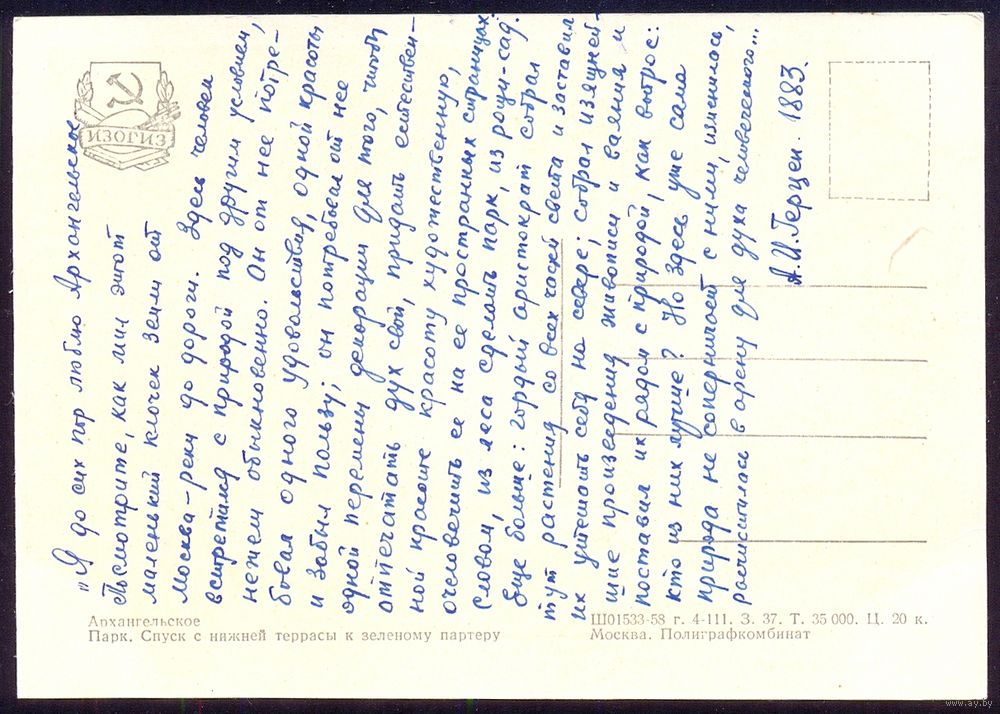 ИЗОГИЗ
"Я до сих пор люблю Архангельское
Посмотрите, как мил этот
маленький клочек земли от
Москва-реки до дороги. Здесь человек
встретился с природой под другим условием,
нежели обыкновенно. Он от нее потре-
бовал одного удовольствия, одной красоты
и забыл пользу; он потребовал от нее
одной перемены декорации для того, чтобы
отпечатать дух свой, придать естествен-
ной красоте красоту художественную,
очеловечить ее на ее пространных страницах
словом, из леса сделать парк, из рощи-сад.
Еще больше: гордый аристократ собрал
тут растения со всех частей света и заставил
их утешать себя на севере; собрал изящней-
шие произведения живописи и ваяния и
поставил их рядом с природой, как вопрос:
кто из них лучше? Но здесь уже сама
природа не соперничает с ними, изменилась,
расчистилась в арену для духа человеческого...
А.И.Герцен. 1833.
Архангельское
Парк. Спуск с нижней террасы к зеленому партеру
Ш01533-58 г. 4-111. З. 37. Т. 35 000. Ц. 20 к.
Москва. Полиграфкомбинат
www.ay.by